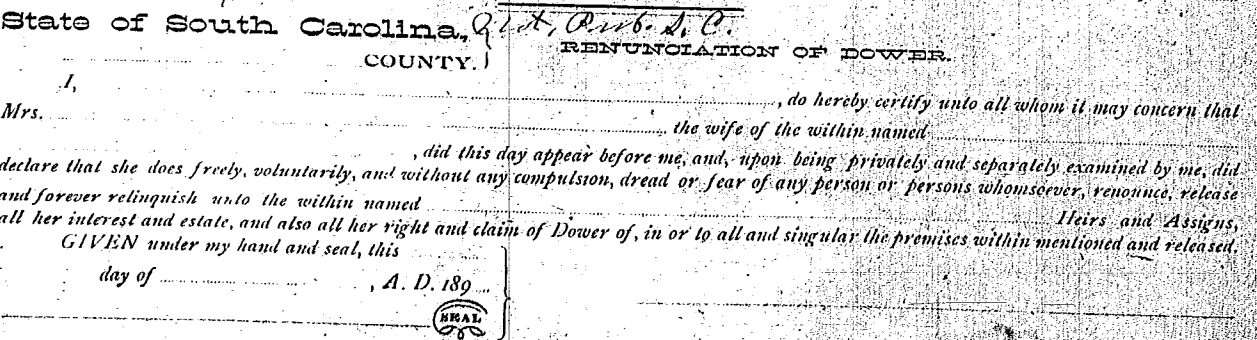 State of South Carolina,
COUNTY.
Pub. S. C.
RENUNCIATION OF DOWER.
I, , do hereby certify unto all whom it may concern that
Mrs. the wife of the within named
, did this day appear before me, and, upon being privately and separately examined by me, did
declare that she does freely, voluntarily, and without any compulsion, dread or fear of any person or persons whomsoever, renounce, release
and forever relinquish unto the within named Heirs and Assigns,
all her interest and estate, and also all her right and claim of Dower of, in or to all and singular the premises within mentioned and released.
GIVEN under my hand and seal, this
day of , A. D. 189
SEAL